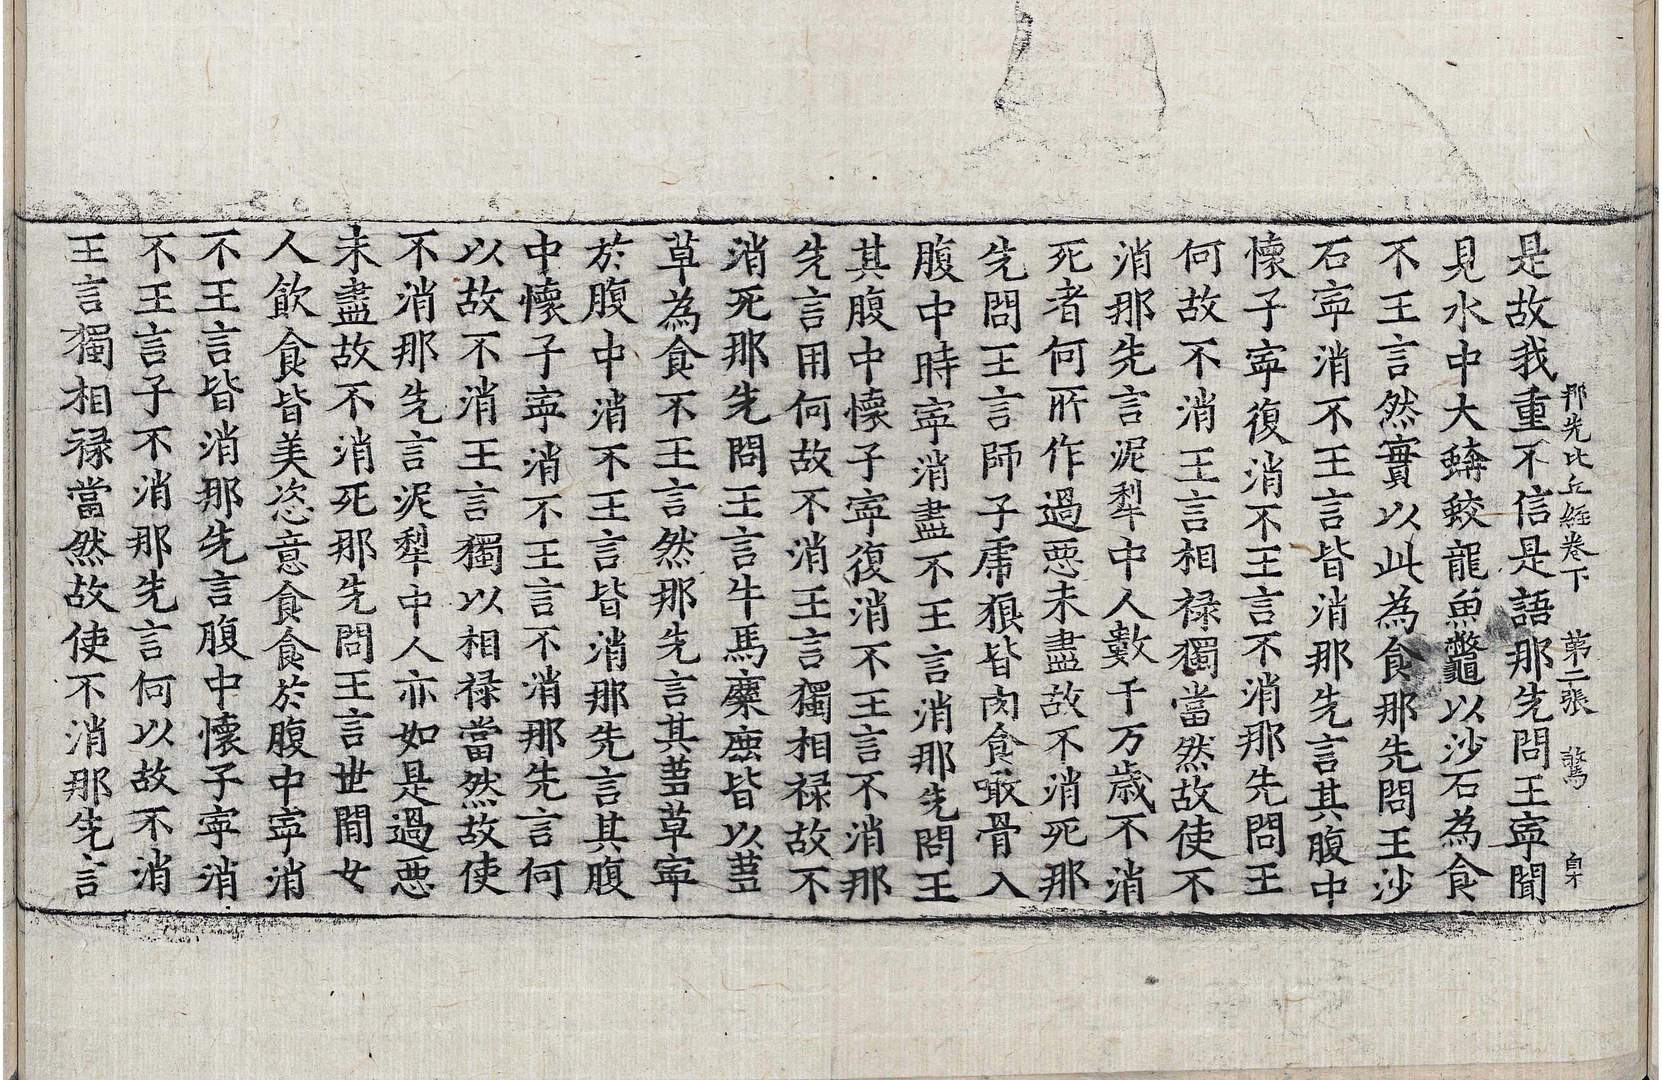 那先比丘經卷下 第二張 驚
是故我重不信是語那先問王寧聞
見水中大蟒蛟龍魚鼈以沙石為食
不王言然實以此為食那先問王沙
石寧消不王言皆消那先言其腹中
懷子寧復消不王言不消那先問王
何故不消王言相祿獨當然故使不
消那先言泥犁中人數千万歲不消
死者何所作過惡未盡故不消死那
先問王言師子虎狼皆肉食噉骨入
腹中時寧消盡不王言消那先問王
其腹中懷子寧復消不王言不消那
先言用何故不消王言獨相祿故不
消死那先問王言牛馬麋鹿皆以蒭
草為食不王言然那先言其蒭草寧
於腹中消不王言皆消那先言其腹
中懷子寧消不王言不消那先言何
以故不消王言獨以相祿當然故使
不消那先言泥犁中人亦如是過惡
未盡故不消死那先問王言世間女
人飲食皆美恣意食食於腹中寧消
不王言皆消那先言腹中懷子寧消
不王言子不消那先言何以故不消
王言獨相祿當然故使不消那先言